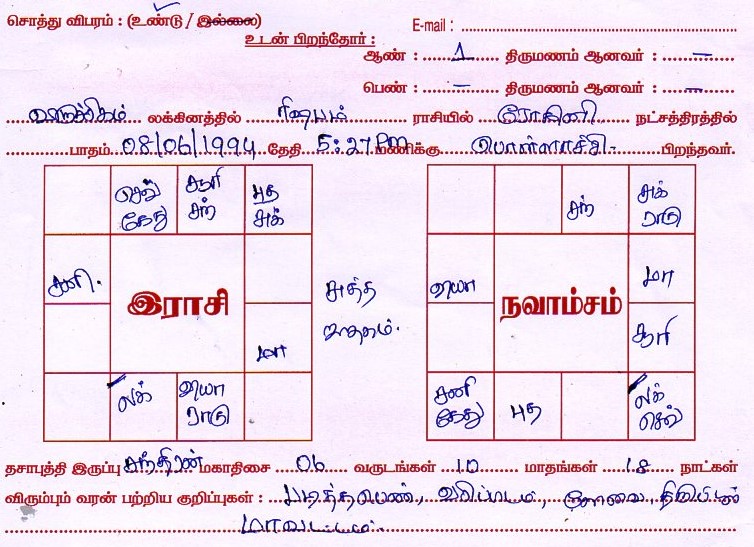 சொத்து விபரம் : (உண்டு / இல்லை)
E-mail :
உடன் பிறந்தோர் :
ஆண் : 1 திருமணம் ஆனவர் : –
பெண் : – திருமணம் ஆனவர் : –
லக்கினத்தில் ரிஷபம் ராசியில் ரோகிணி நட்சத்திரத்தில்
பாதம் 08/06/1994 தேதி 5:27 PM மணிக்கு பொள்ளாச்சி பிறந்தவர்.
செவ் கேது
சூரி சந்
புத சுக்
சனி
மா
லக்
வியா ராகு
இராசி
சுத்த ஜாதகம்.
சந்
சுக் ராகு
வியா
மா
சூரி
சனி கேது
புத
லக் செவ்
நவாம்சம்
தசாபுத்தி இருப்பு சந்திரன் மகாதிசை 06 வருடங்கள் 10 மாதங்கள் 18 நாட்கள்
விரும்பும் வரன் பற்றிய குறிப்புகள் : படித்தபெண், கோவை, திருப்பூர்
மாவட்டம்.